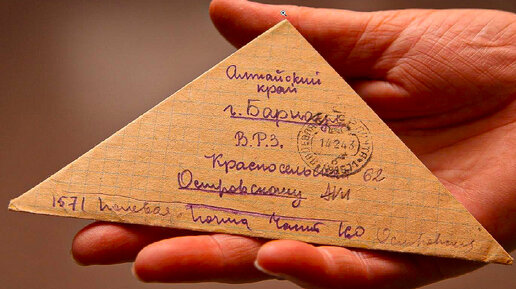 Алтайский
край
г. Барнаул
В.Р.З.
Красносельская 62
Островскому
1571 Полевая почта часть 160
1 4 2 43